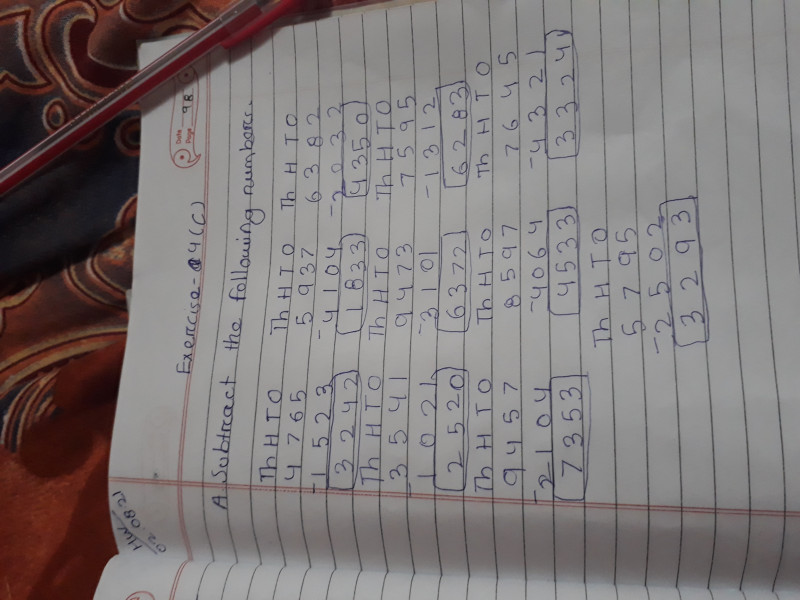 Date
Page 98
HW
02.08.21
Exercise-4(C)
A. Subtract the following numbers.
Th H T O Th H T O Th H T O
4 7 6 5 5 9 3 7 6 3 8 2
-1 5 2 3 -4 1 0 4 -2 0 3 2
3 2 4 2 1 8 3 3 4 3 5 0
Th H T O Th H T O Th H T O
3 5 4 1 9 4 7 3 7 5 9 5
-1 0 2 1 -3 1 0 1 -1 3 1 2
2 5 2 0 6 3 7 2 6 2 8 3
Th H T O Th H T O Th H T O
9 4 5 7 8 5 9 7 7 6 4 5
-2 1 0 4 -4 0 6 4 -4 3 2 1
7 3 5 3 4 5 3 3 3 3 2 4
Th H T O
5 7 9 5
-2 5 0 2
3 2 9 3